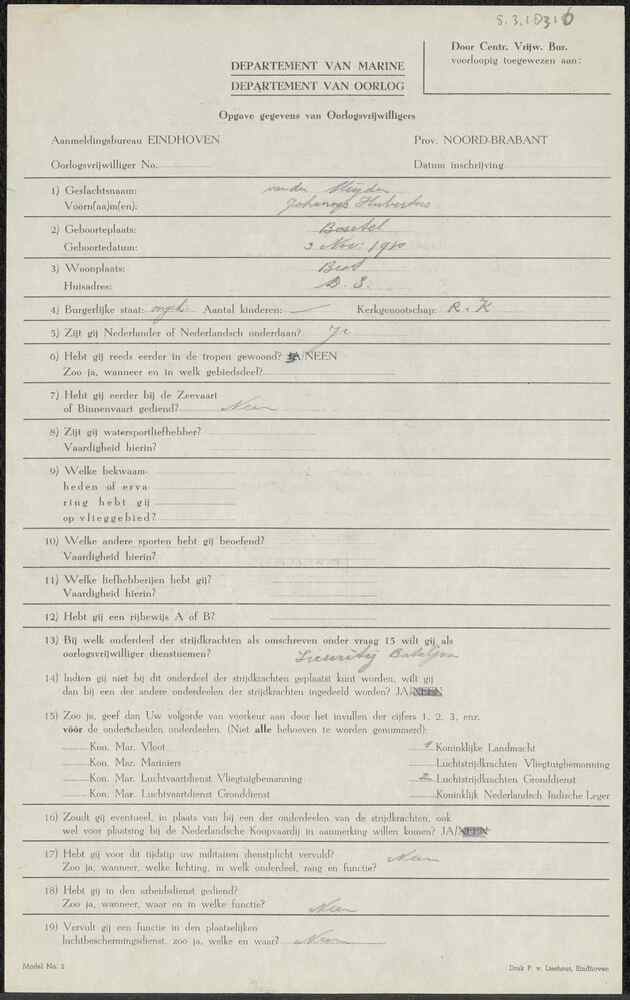 Door Centr. Vrijw. Bur.
voorloopig toegewezen aan:
DEPARTEMENT VAN MARINE
DEPARTEMENT VAN OORLOG
Opgave gegevens van Oorlogsvrijwilligers
Aanmeldingsbureau EINDHOVEN
Prov. NOORD-BRABANT
Oorlogsvrijwilliger No.
Datum inschrijving
1) Geslachtsnaam: van der
Voorn(aa)m(en): Johannes Hubertus
2) Geboorteplaats: Boxtel
Geboortedatum: 3 Nov.
3) Woonplaats: Best
Huisadres: B. 8.
4) Burgerlijke staat: ongeh. Aantal kinderen: — Kerkgenootschap: R. K
5) Zijt gij Nederlander of Nederlandsch onderdaan? Ja
6) Hebt gij reeds eerder in de tropen gewoond? JA/NEEN
Zoo ja, wanneer en in welk gebiedsdeel?
7) Hebt gij eerder bij de Zeevaart
of Binnenvaart gediend? Neen
8) Zijt gij watersportliefhebber?
Vaardigheid hierin?
9) Welke bekwaam-
heden of erva-
ring hebt gij
op vlieggebied?
10) Welke andere sporten hebt gij beoefend?
Vaardigheid hierin?
11) Welke liefhebberijen hebt gij?
Vaardigheid hierin?
12) Hebt gij een rijbewijs A of B?
13) Bij welk onderdeel der strijdkrachten als omschreven onder vraag 15 wilt gij als
oorlogsvrijwilliger dienstnemen?
14) Indien gij niet bij dit onderdeel der strijdkrachten geplaatst kunt worden, wilt gij
dan bij een der andere onderdeelen der strijdkrachten ingedeeld worden? JA/NEEN
15) Zoo ja, geef dan Uw volgorde van voorkeur aan door het invullen der cijfers 1, 2, 3, enz.
vóór de onderscheiden onderdeelen. (Niet alle behoeven te worden genummerd):
Kon. Mar. Vloot
1 Koninklijke Landmacht
Kon. Mar. Mariniers
Luchtstrijdkrachten Vliegtuigbemanning
Kon. Mar. Luchtvaartdienst Vliegtuigbemanning
2 Luchtstrijdkrachten Gronddienst
Kon. Mar. Luchtvaartdienst Gronddienst
Koninklijk Nederlandsch Indische Leger
16) Zoudt gij eventueel, in plaats van bij een der onderdeelen van de strijdkrachten, ook
wel voor plaatsing bij de Nederlandsche Koopvaardij in aanmerking willen komen? JA/NEEN
17) Hebt gij voor dit tijdstip uw militairen dienstplicht vervuld? Neen
Zoo ja, wanneer, welke lichting, in welk onderdeel, rang en functie?
18) Hebt gij in den arbeidsdienst gediend?
Zoo ja, wanneer, waar en in welke functie? Neen
19) Vervult gij een functie in den plaatselijken
luchtbeschermingsdienst, zoo ja, welke en waar? Neen
Model No. 2
Druk F. v. Lieshout, Eindhoven